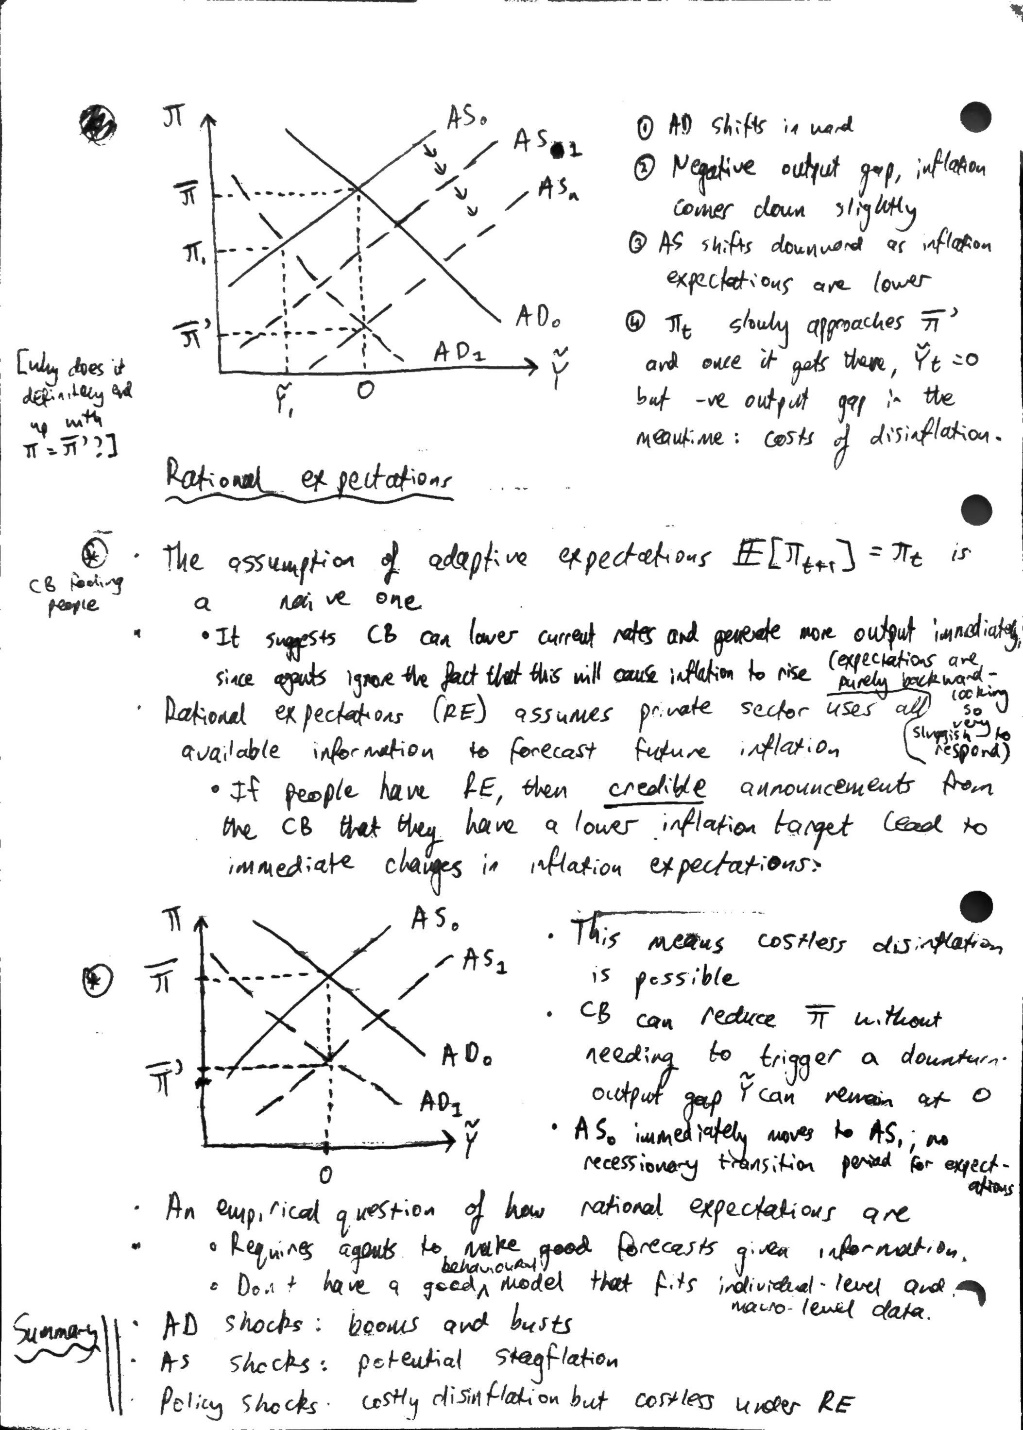 π
AS₀
AS₁
ASₙ
π̄
π₁
π̄'
AD₀
AD₁
Ỹ
Ỹ₁
0
① AD shifts inward
② Negative output gap, inflation
comes down slightly
③ AS shifts downward as inflation
expectations are lower
④ πt slowly approaches π̄'
and once it gets there, Ỹt = 0
but -ve output gap in the
meantime: costs of disinflation.
[why does it
definitely end
up with
π = π̄'?]
Rational expectations
* CB fooling
people
· The assumption of adaptive expectations 𝔼[πt+1] = πt is
a naive one
• It suggests CB can lower current rates and generate more output immediately,
since agents ignore the fact that this will cause inflation to rise (expectations are
purely backward-
looking
so
very
sluggish to
respond)
· Rational expectations (RE) assumes private sector uses all
available information to forecast future inflation
• If people have RE, then credible announcements from
the CB that they have a lower inflation target lead to
immediate changes in inflation expectations:
*
π
AS₀
AS₁
π̄
π̄'
AD₀
AD₁
Ỹ
0
· This means costless disinflation
is possible
· CB can reduce π̄ without
needing to trigger a downturn.
output gap Ỹ can remain at 0
· AS₀ immediately moves to AS₁; no
recessionary transition period for expect-
ations
· An empirical question of how rational expectations are
∘ Requires agents to make good forecasts given information.
∘ Don't have a good ^behavioural model that fits individual-level and
macro-level data.
Summary
· AD shocks: booms and busts
· AS shocks: potential stagflation
· Policy shocks. costly disinflation but costless under RE